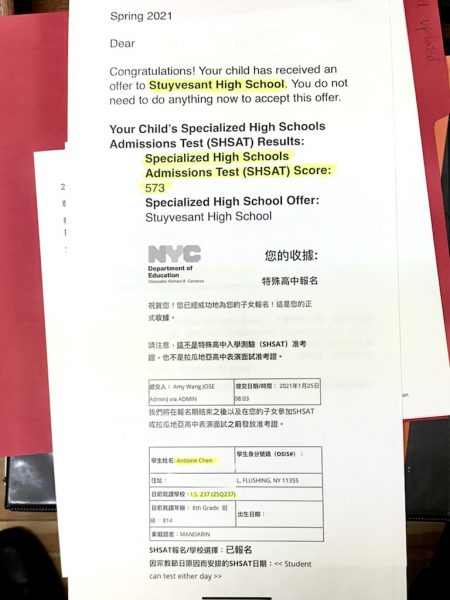 Spring 2021
Dear
Congratulations! Your child has received an
offer to Stuyvesant High School. You do not
need to do anything now to accept this offer.
Your Child's Specialized High Schools
Admissions Test (SHSAT) Results:
Specialized High Schools
Admissions Test (SHSAT) Score:
573
Specialized High School Offer:
Stuyvesant High School
NYC
Department of
Education
Chancellor Richard A. Carranza
您的收據:
特殊高中報名
祝賀您！您已經成功地為您的子女報名！這是您的正
式收據。
請注意，這不是特殊高中入學測驗（SHSAT）准考
證，也不是拉瓜地亞高中表演面試准考證。
遞交人： Amy Wang (OSE
Admin) via ADMIN
提交日期/時間： 2021年1月25日
08:03
我們將在報名期結束之後以及在您的子女參加SHSAT
或拉瓜地亞高中表演面試之前發放准考證。
學生姓名: Antoine Chen
學生身分號碼（OSIS#）:
住址：
L, FLUSHING, NY 11355
目前就讀學校： I.S. 237 (25Q237)
目前就讀年級： 8th Grade 班
級： 814
出生日期：
家庭語言： MANDARIN
SHSAT報名/學校選擇：已報名
因宗教節日原因而安排的SHSAT日期：<< Student
can test either day >>